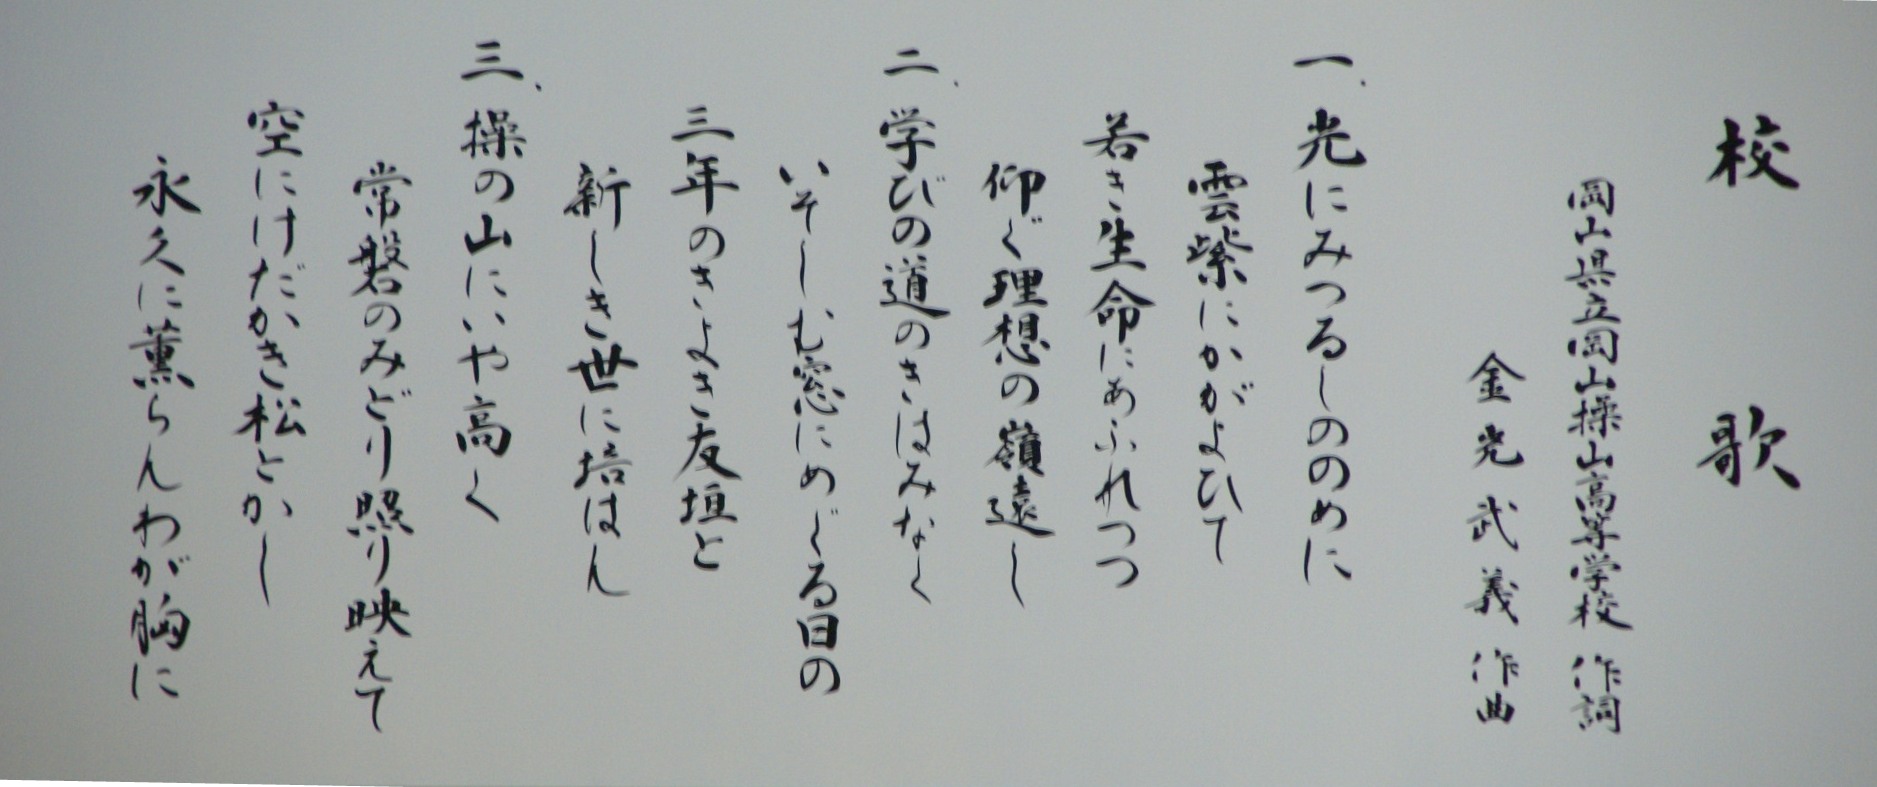 校歌
岡山県立岡山操山高等学校 作詞
金光武義 作曲
一、光にみつるしののめに
雲紫にかがよひて
若き生命にあふれつつ
仰ぐ理想の嶺遠し
二、学びの道のきはみなく
いそしむ窓にめぐる日の
三年のきよき友垣と
新しき世に培はん
三、操の山にいや高く
常磐のみどり照り映えて
空にけだかき松とかし
永久に薫らんわが胸に